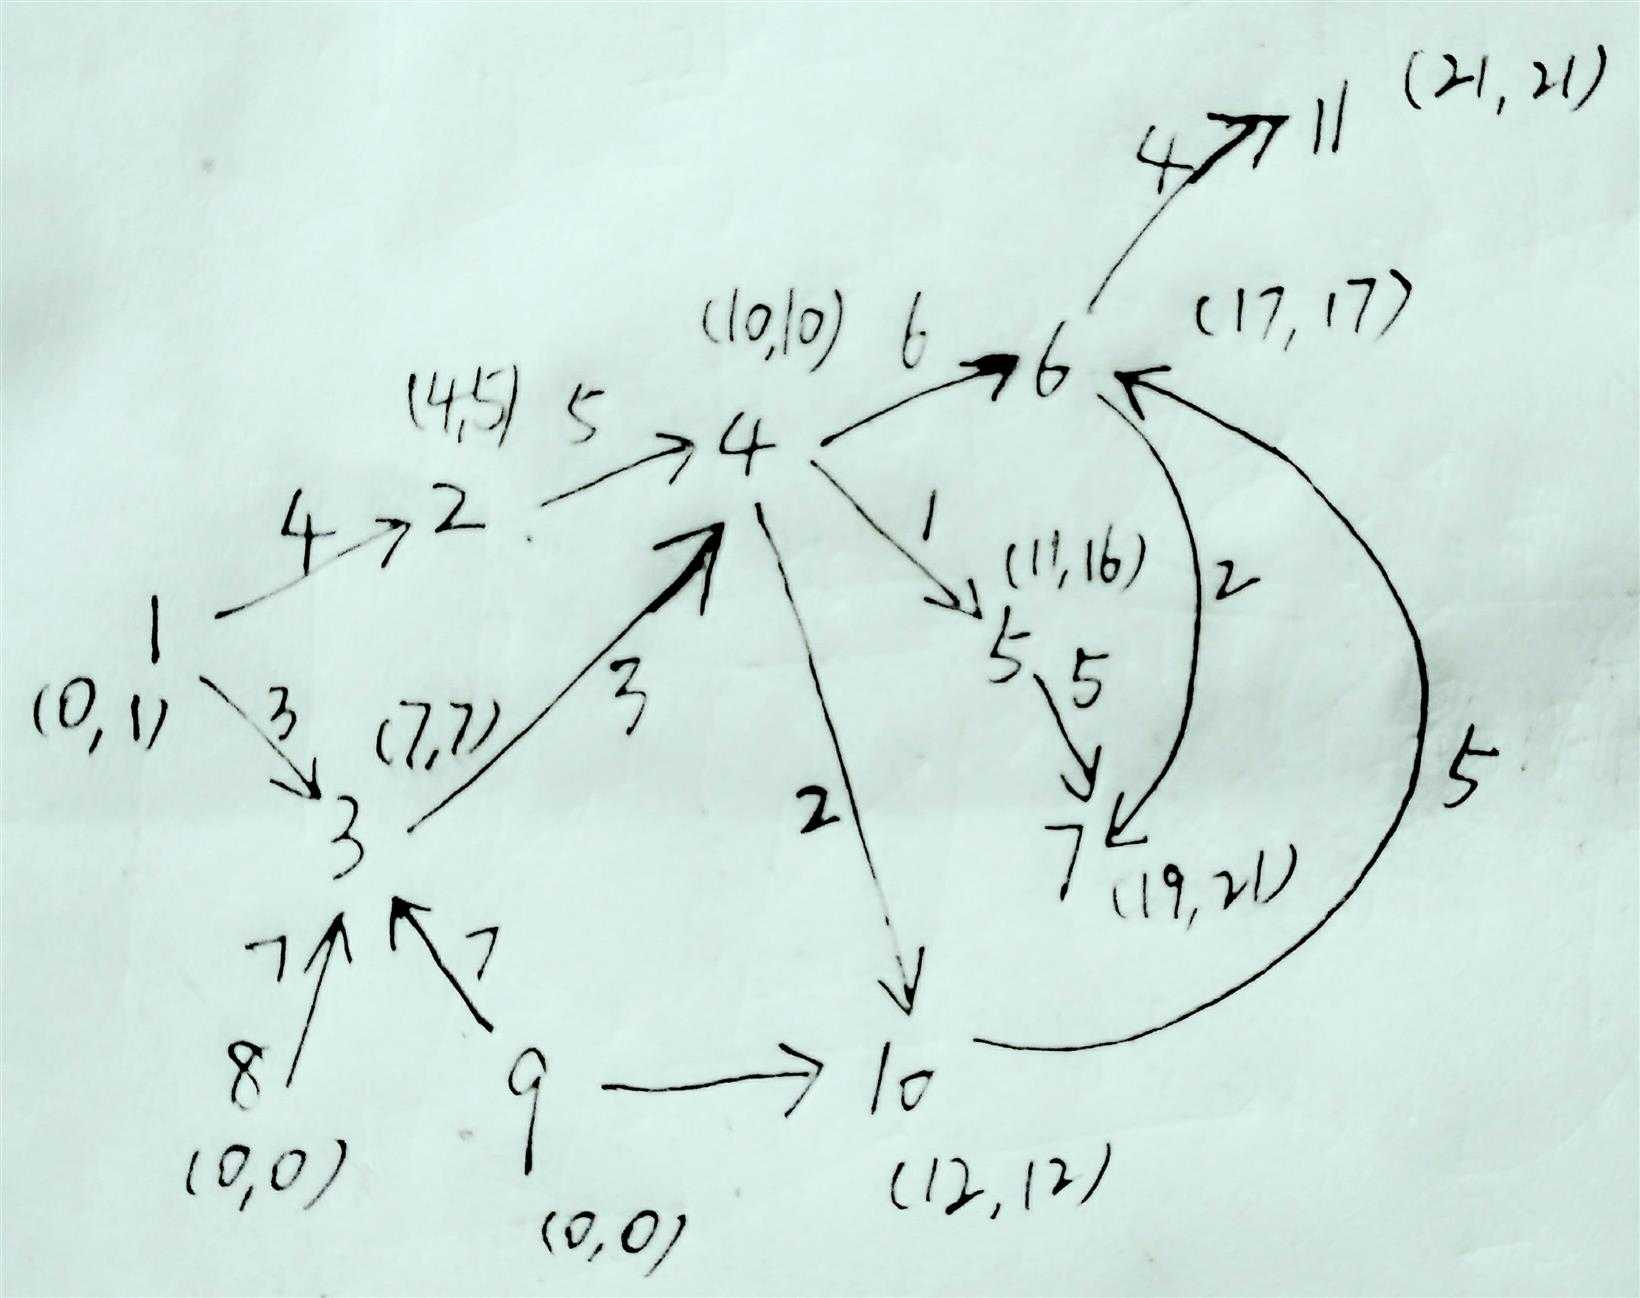 (21, 21)
4
11
(10,10)
6
6
(17, 17)
(4,5)
5
4
4
2
1
1
(11,16)
2
(0, 1)
3
(7,7)
3
5
5
5
3
2
7
(19,21)
7
7
8
9
10
(0,0)
(0,0)
(12,12)